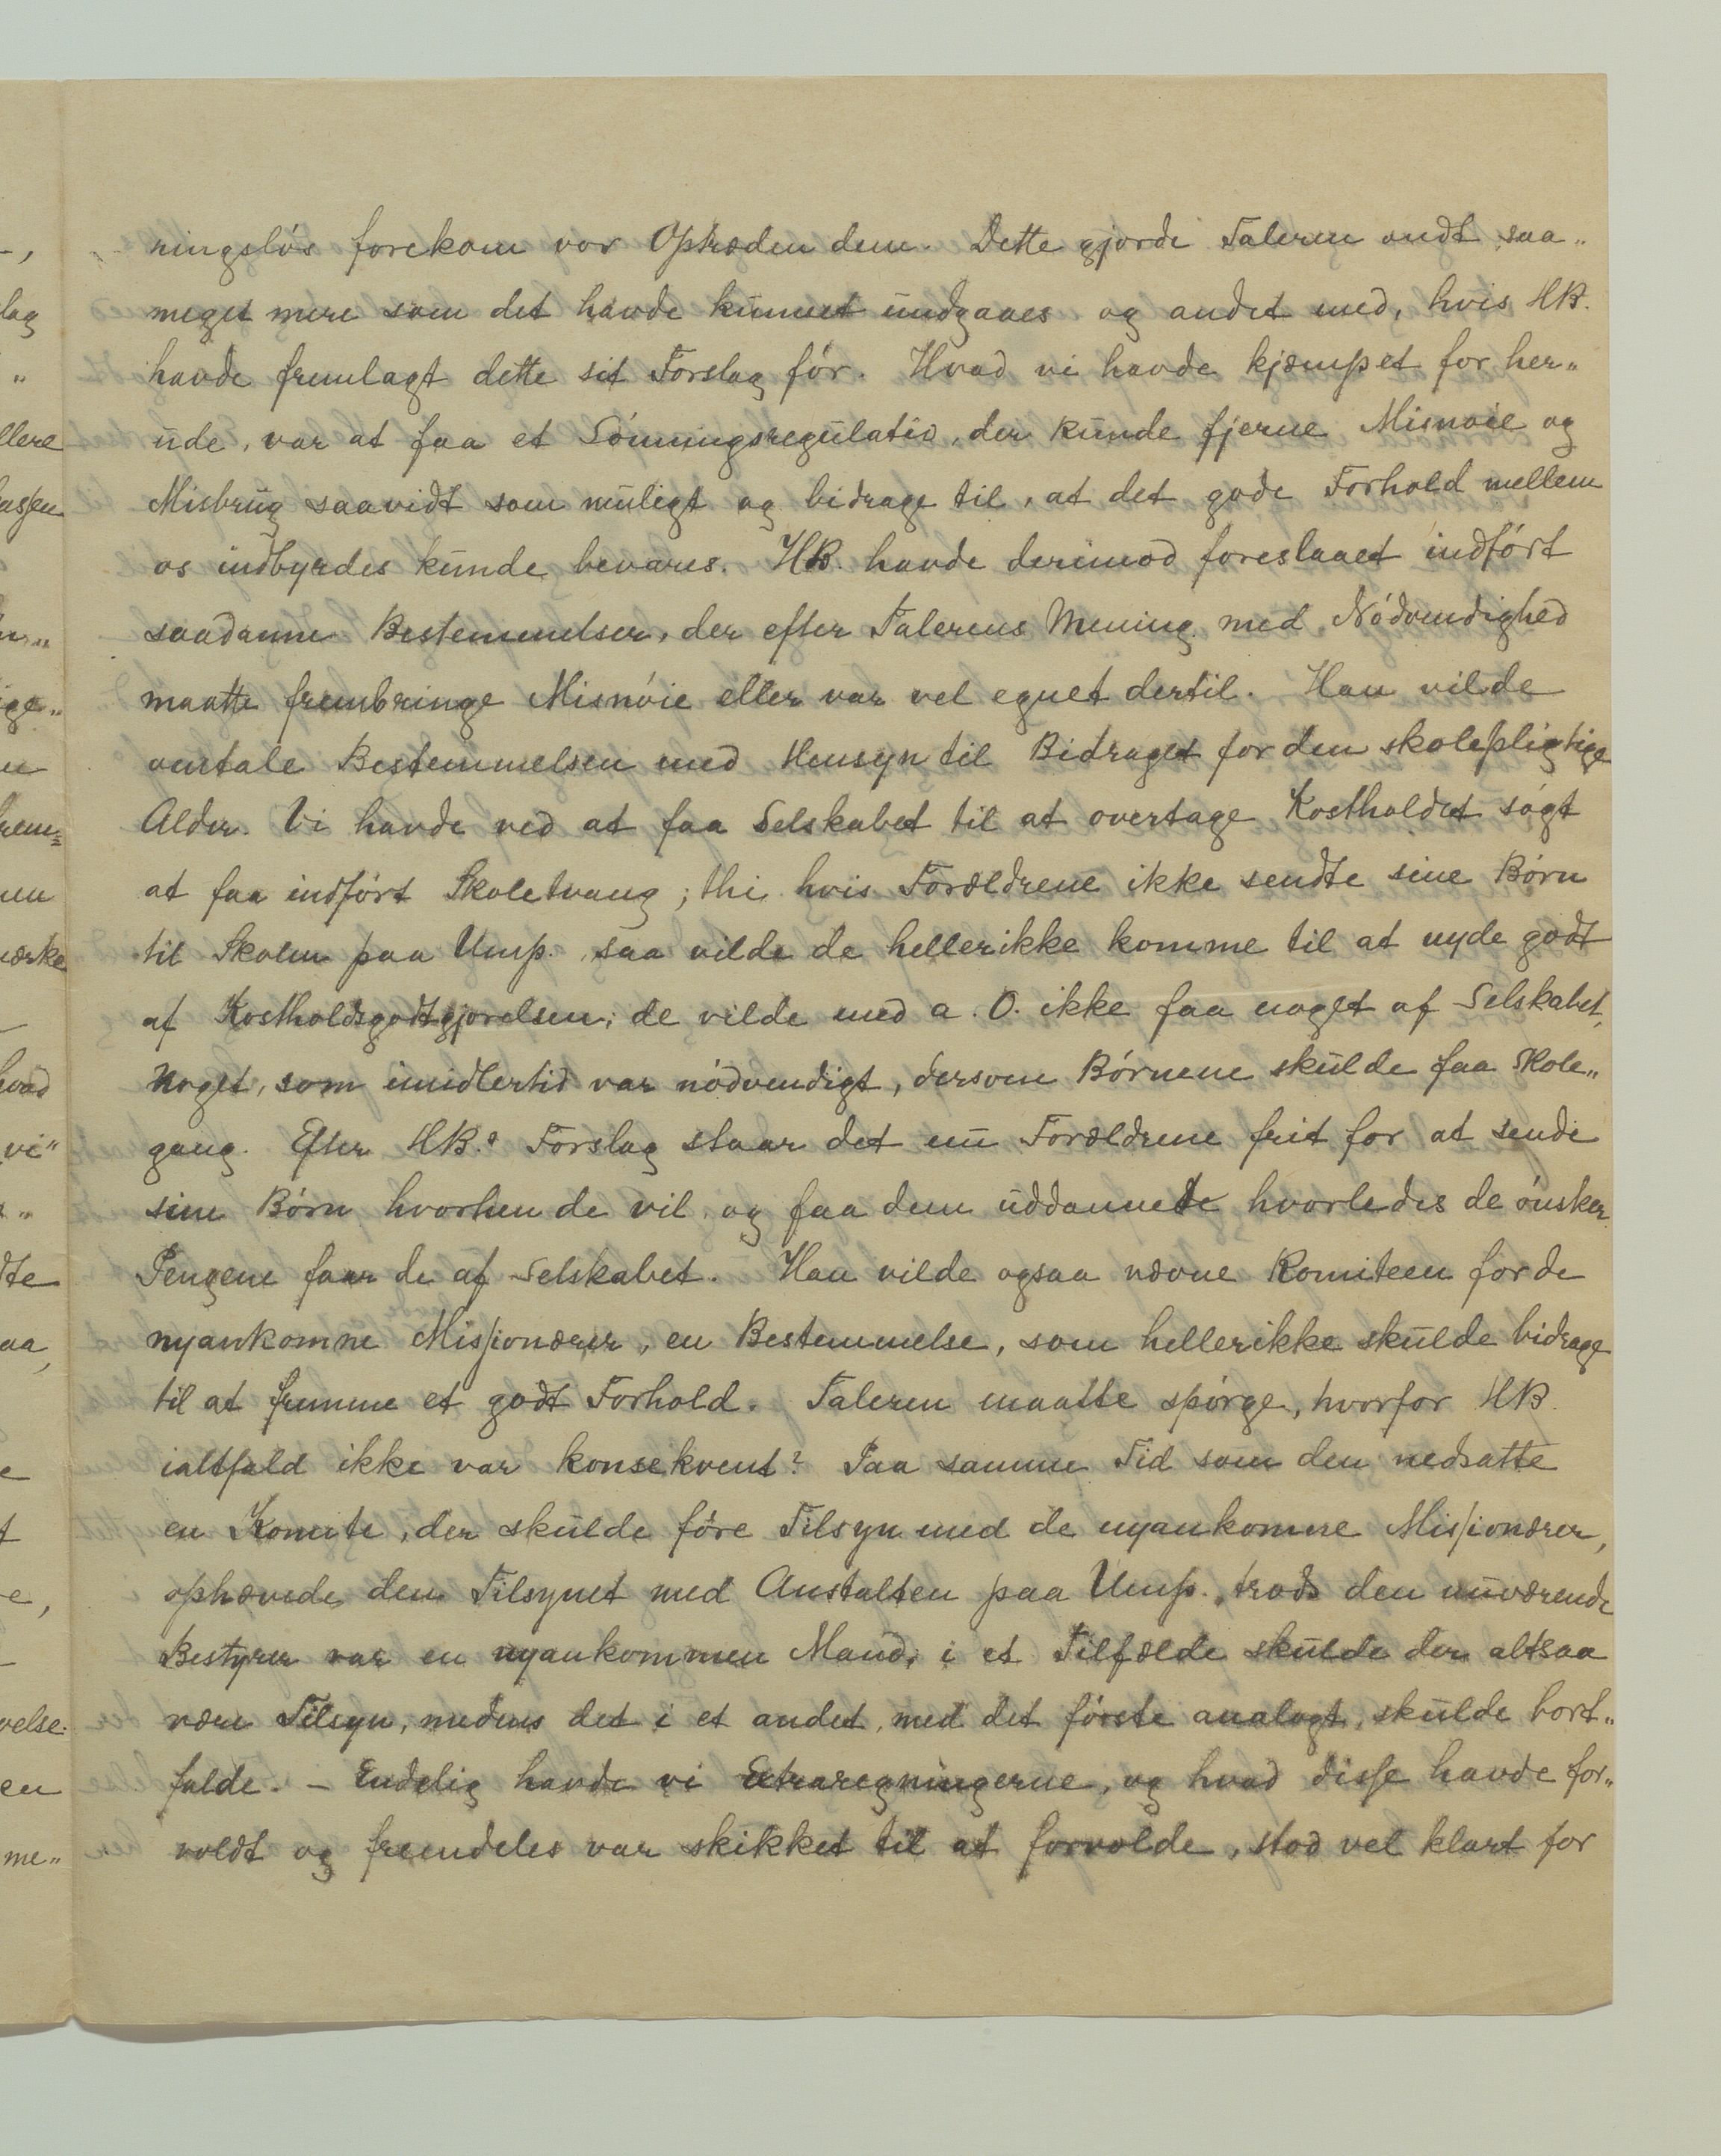 ningsløs forekom vor Optræden dem. Dette gjorde Taleren ondt saa„
meget mere som det havde kunnet undgaaes og andet med, hvis HB.
havde fremlagt dette sit Forslag før. Hvad vi havde kjæmpet for her„
ude, var at faa et Lønningsregulativ, der kunde fjerne Misnøie og
Misbrug saavidt som muligt og bidrage til, at det gode Forhold mellem
os indbyrdes kunde bevares. HB. havde derimod foreslaaet indført
saadanne Bestemmelser, der efter Talerens Mening med Nødvendighed
maatte frembringe Misnøie eller var vel egnet dertil. Han vilde
omtale Bestemmelsen med Hensyn til Bidraget for den skolepligtige
Alder. Vi havde ved at faa Selskabet til at overtage Kostholdet søgt
at faa indført Skoletvang; thi hvis Forældrene ikke sendte sine Børn
til Skolen paa Ump. saa vilde de hellerikke komme til at nyde godt
af Kostholdsgodtgjørelsen; de vilde med a. O. ikke faa noget af Selskabet,
Noget, som imidlertid var nødvendigt, dersom Børnene skulde faa Skole„
gang. Efter HB.s Forslag staar det nu Forældrene frit for at sende
sine Børn hvorhen de vil og faa dem uddannede hvorledes de ønsker
Pengene faar de af Selskabet. Han vilde ogsaa nævne Komiteen for de
nyankomne Missionærer, en Bestemmelse, som hellerikke skulde bidrage
til at fremme et godt Forhold. Taleren maatte spørge, hvorfor HB.
ialtfald ikke var konsekvent? Paa samme Tid som den nedsatte
en Komite, der skulde føre Tilsyn med de nyankomne Missionærer,
ophævede den Tilsynet med Anstalten paa Ump., trods den nuværende
Bestyrer var en nyankommen Mand; i et Tilfælde skulde der altsaa
være Tilsyn, medens det i et andet, med det første analogt, skulde bort„
falde. – Endelig havde vi Extraregningerne, og hvad disse havde for„
voldt og fremdeles var skikket til at forvolde, stod vel klart for